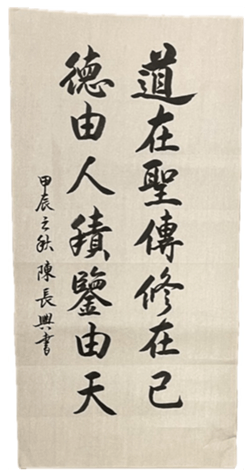 道在聖傳修在己
德由人積鑒由天
甲辰之秋陳長興書